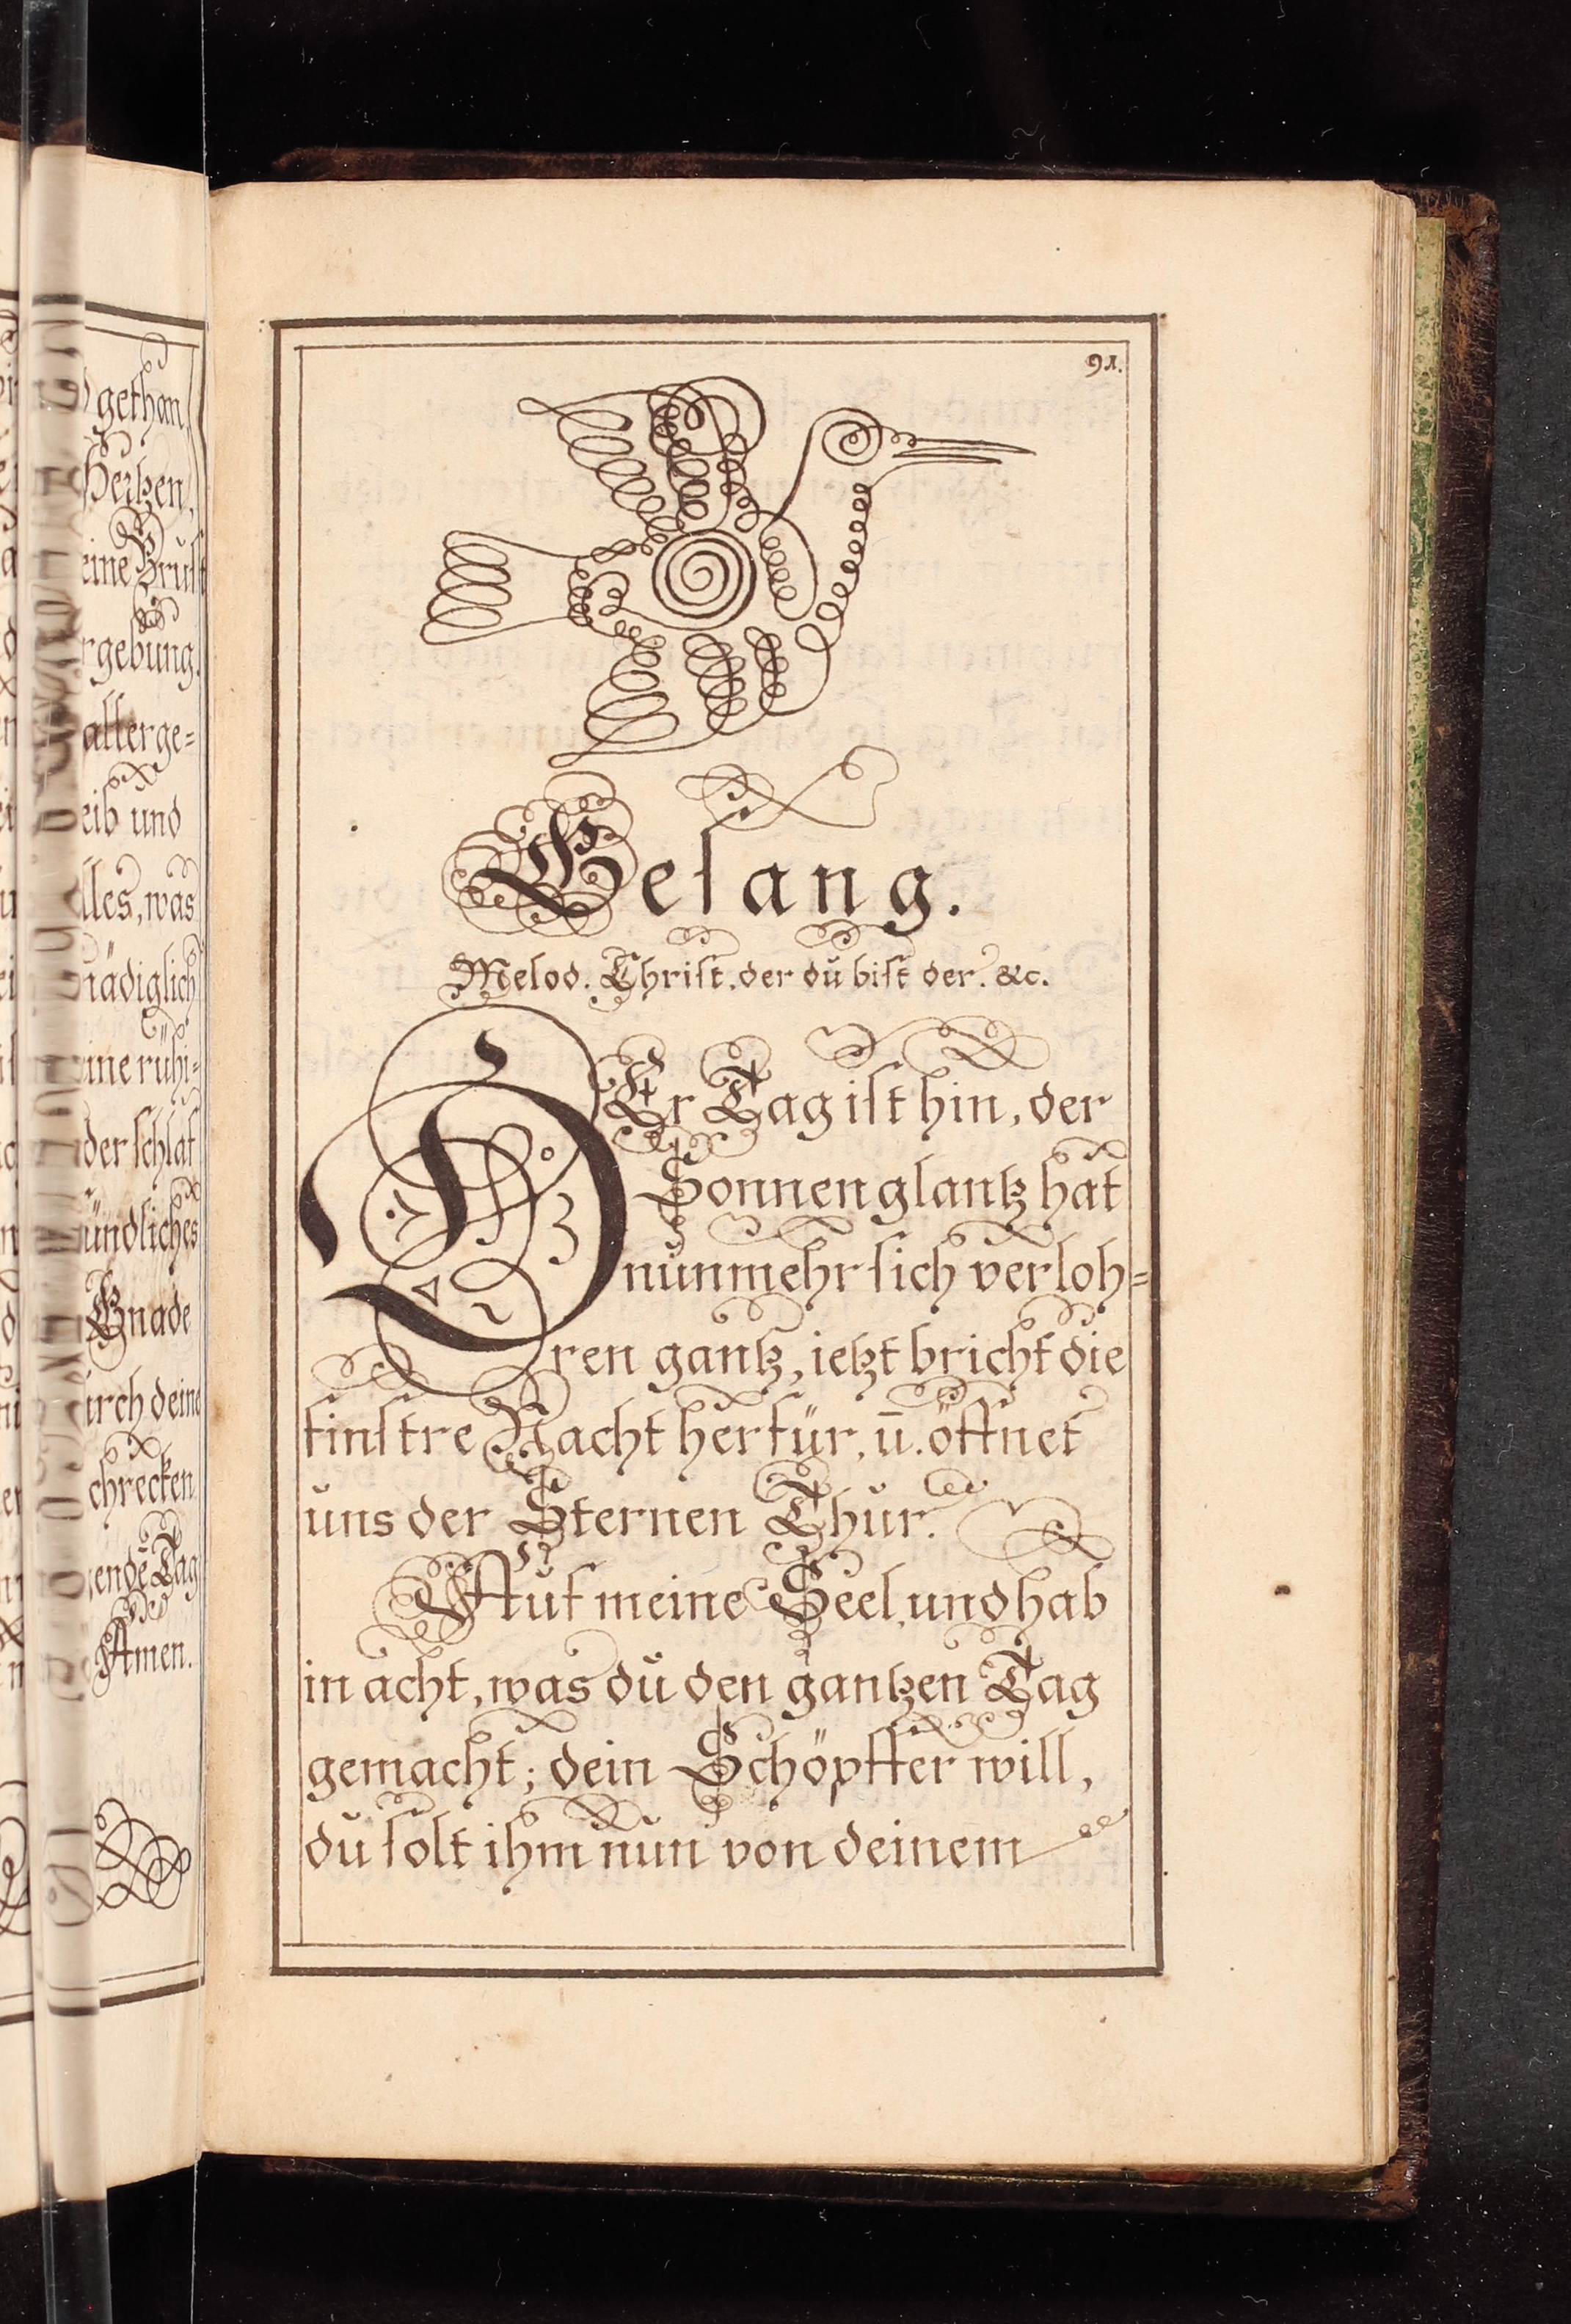 gethan,
Hertzen,
eine Brust
rgebung.
allerge=
eib und
lles, was
nädiglich
eine ruhi=
der schlaf
ündliches
Gnade
urch deine
chrecken
Tag
Amen.
91.
Gesang.
Melod. Christ, der du bist der. &c.
DEr Tag ist hin, der
Sonnen glantz hat
nunmehr sich verloh=
ren gantz, ietzt bricht die
finstre Nacht herfür, ū. öffnet
uns der Sternen Thür.
Auf meine Seel, und hab
in acht, was du den gantzen Tag
gemacht; dein Schöpffer will,
du solt ihm nun von deinem